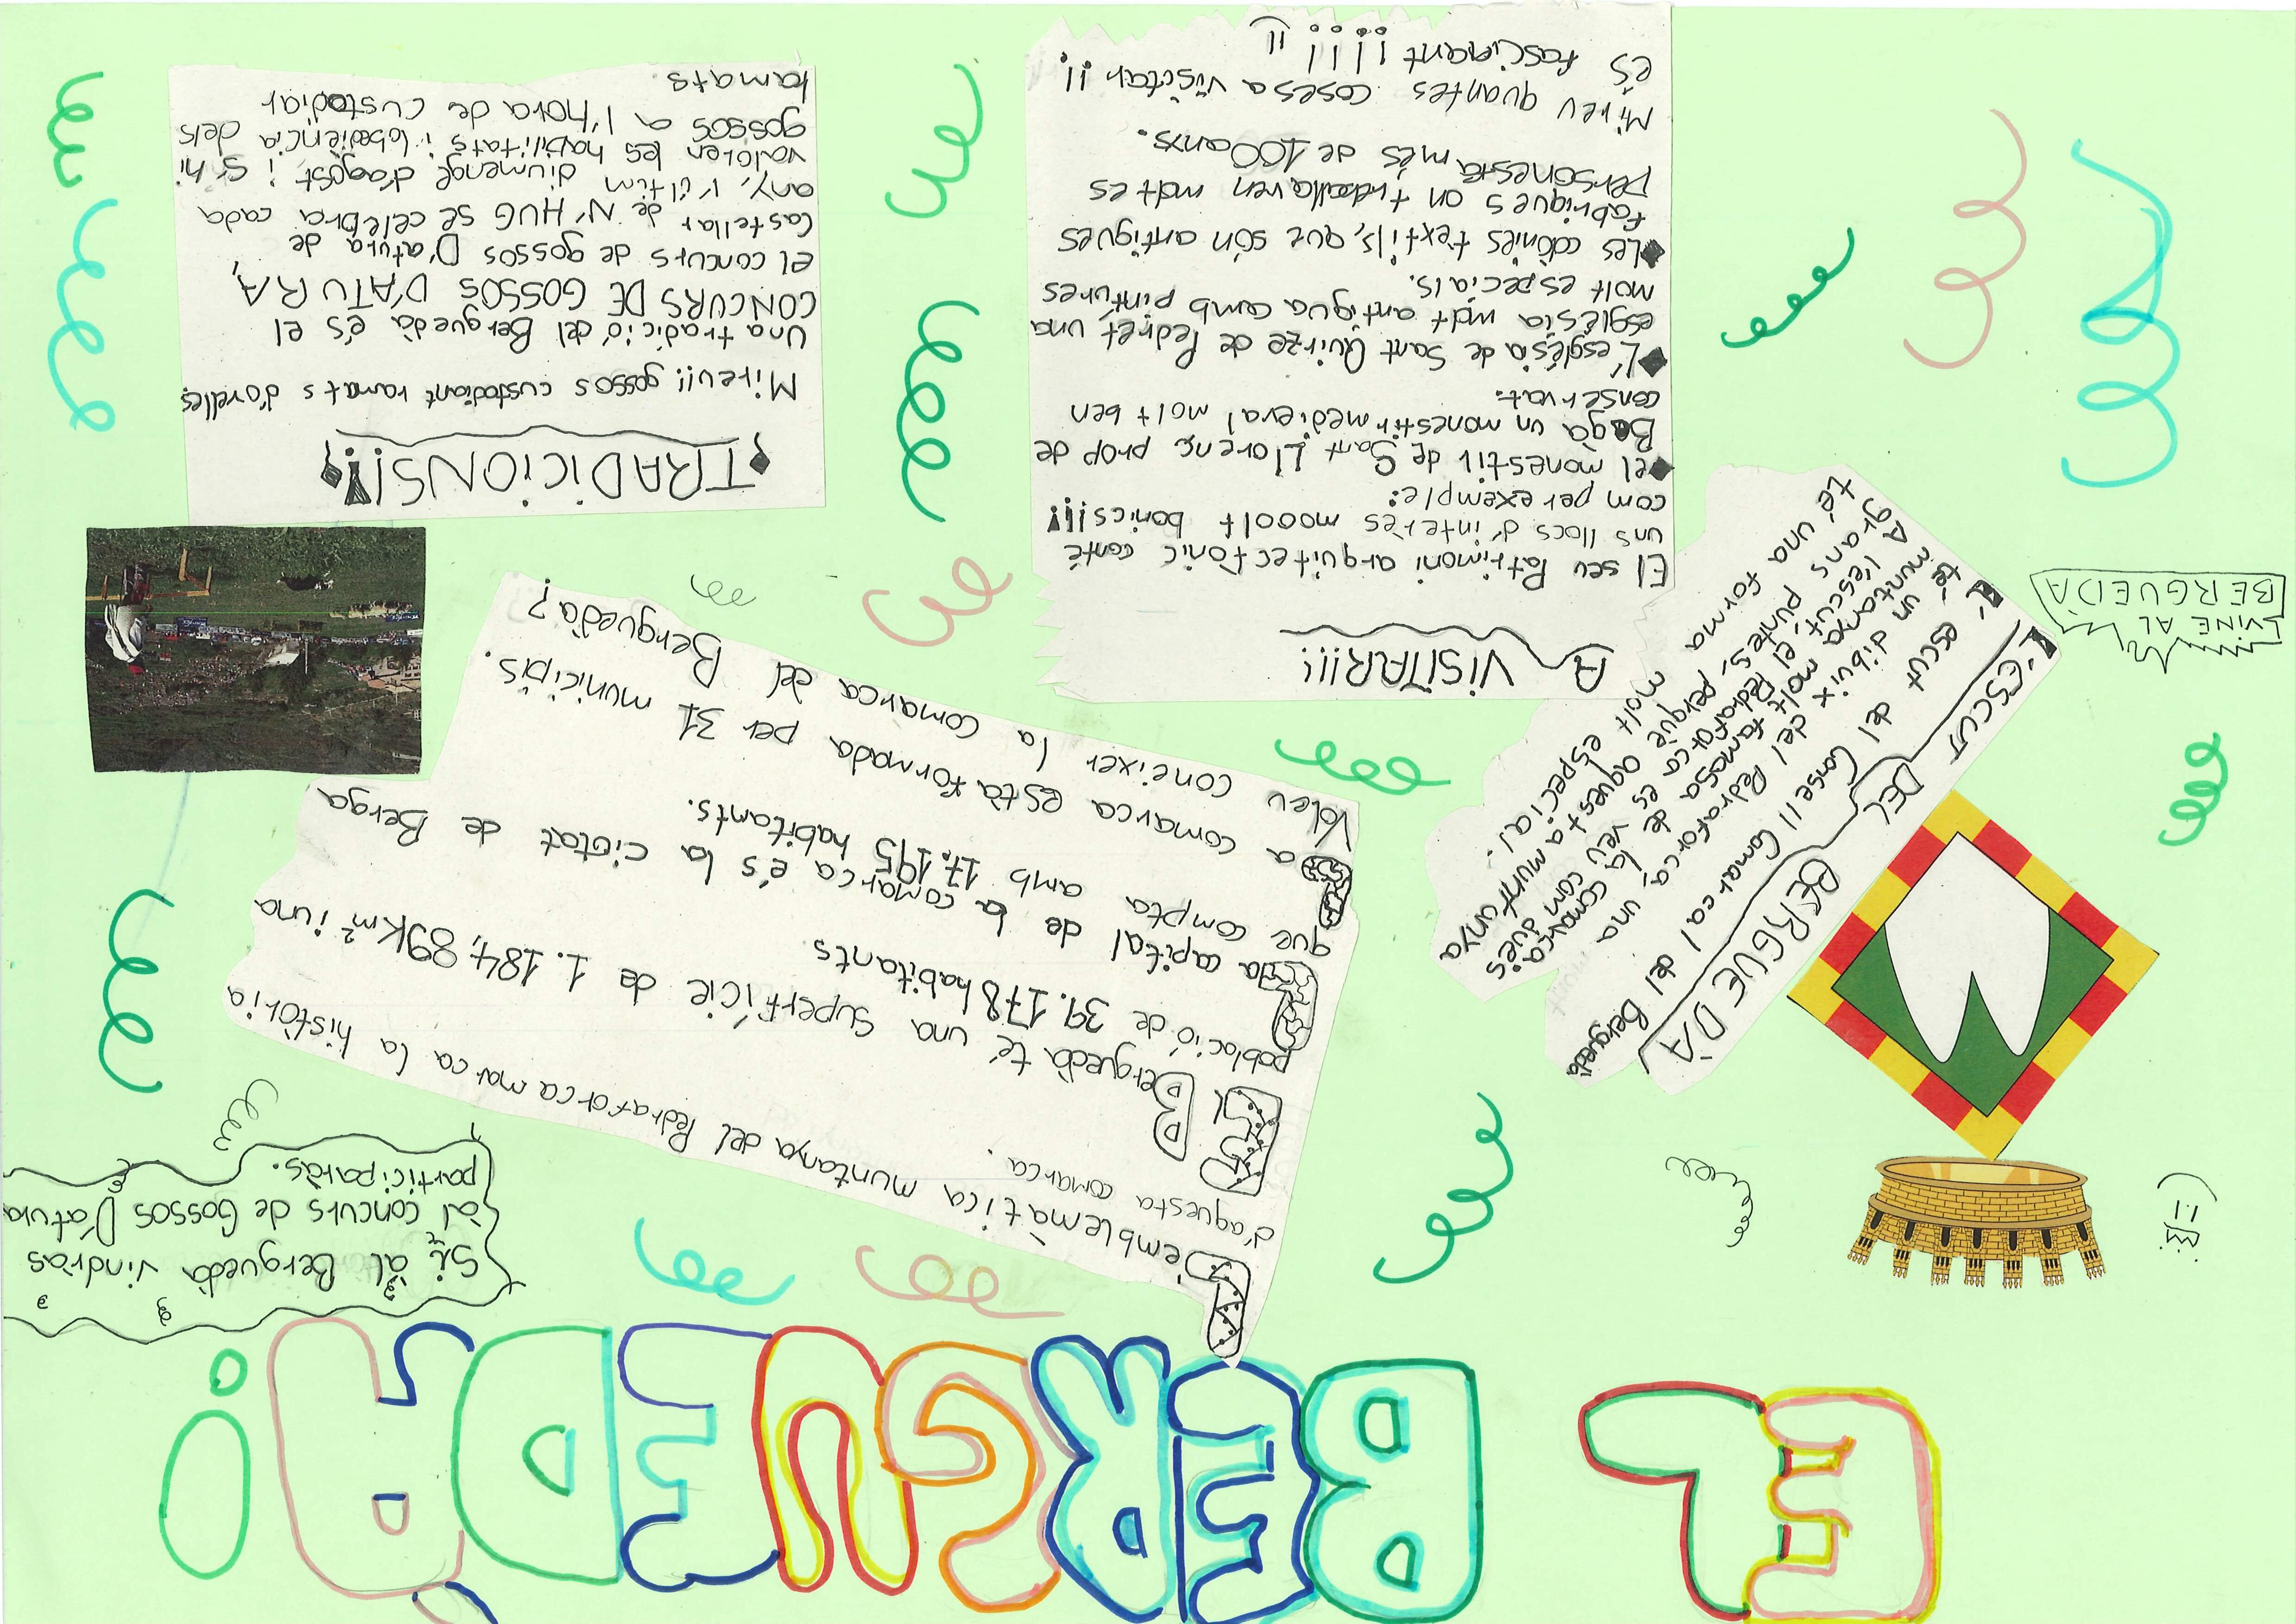 EL BERGUEDÀ!
Si al Berguedà vindràs
al concurs de Gossos D'atura
participaràs.
L'emblemàtica muntanya del Pedraforca marca la història
d'aquesta comarca.
EL Berguedà té una superfície de 1.184,89 Km² i una
població de 39.178 habitants
La capital de la comarca és la ciutat de Berga
que compta amb 17.195 habitants.
La comarca està formada per 31 municipis.
Voleu coneixer la comarca del Berguedà?
L'ESCUT DEL BERGUEDÀ
L'escut del Consell Comarcal del Berguedà
té un dibuix del Pedraforca, una
muntanya molt famosa de la comarca.
A l'escut, el Pedraforca es veu com dues
grans puntes, perquè aquesta muntanya
té una forma molt especial.
VINE AL
BERGUEDÀ
A VISITAR!!!
El seu Patrimoni arquitectònic conté
uns llocs d'interès mooolt bonics!!!!
com per exemple:
el monestir de Sant Llorenç prop de
Bagà un monestir medieval molt ben
conservat.
L'església de Sant Quirze de Pedret una
església molt antiga amb pintures
molt especials.
Les colònies textils, que són antigues
fabriques on treballaven moltes
persones fa més de 100 anys.
Mireu quantes coses a visitar!!
és fascinant !!!!
TRADICIONS!!
Mireu!! gossos custodiant ramats d'ovelles
Una tradició del Berguedà és el
CONCURS DE GOSSOS D'ATURA,
El concurs de gossos D'atura de
Castellar de N'HUG se celebra cada
any, l'últim diumenge d'agost i s'hi
valoren les habilitats i lobediència dels
gossos a l'hora de custodiar
ramats.